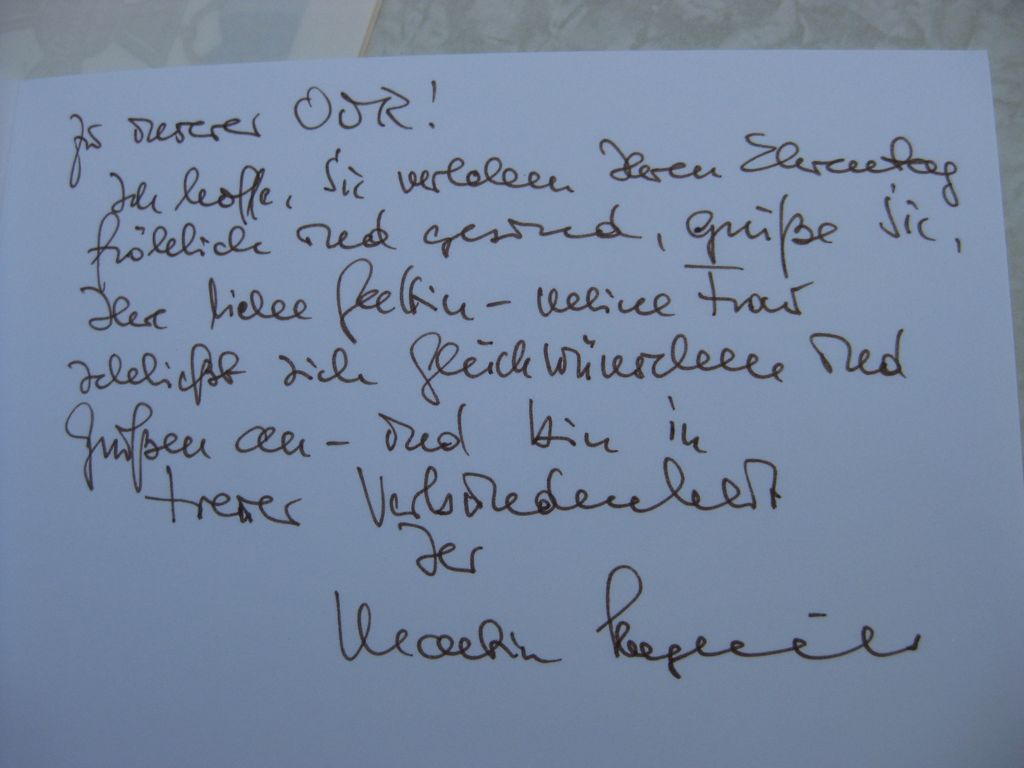 zu unserer DDR!
Ich hoffe, Sie verleben Ihren Ehrentag
fröhlich und gesund, grüße Sie,
Ihre liebe Gattin – meine Frau
schließt sich Glückwünschen und
Grüßen an – und bin in
treuer Verbundenheit
Ihr
Martin